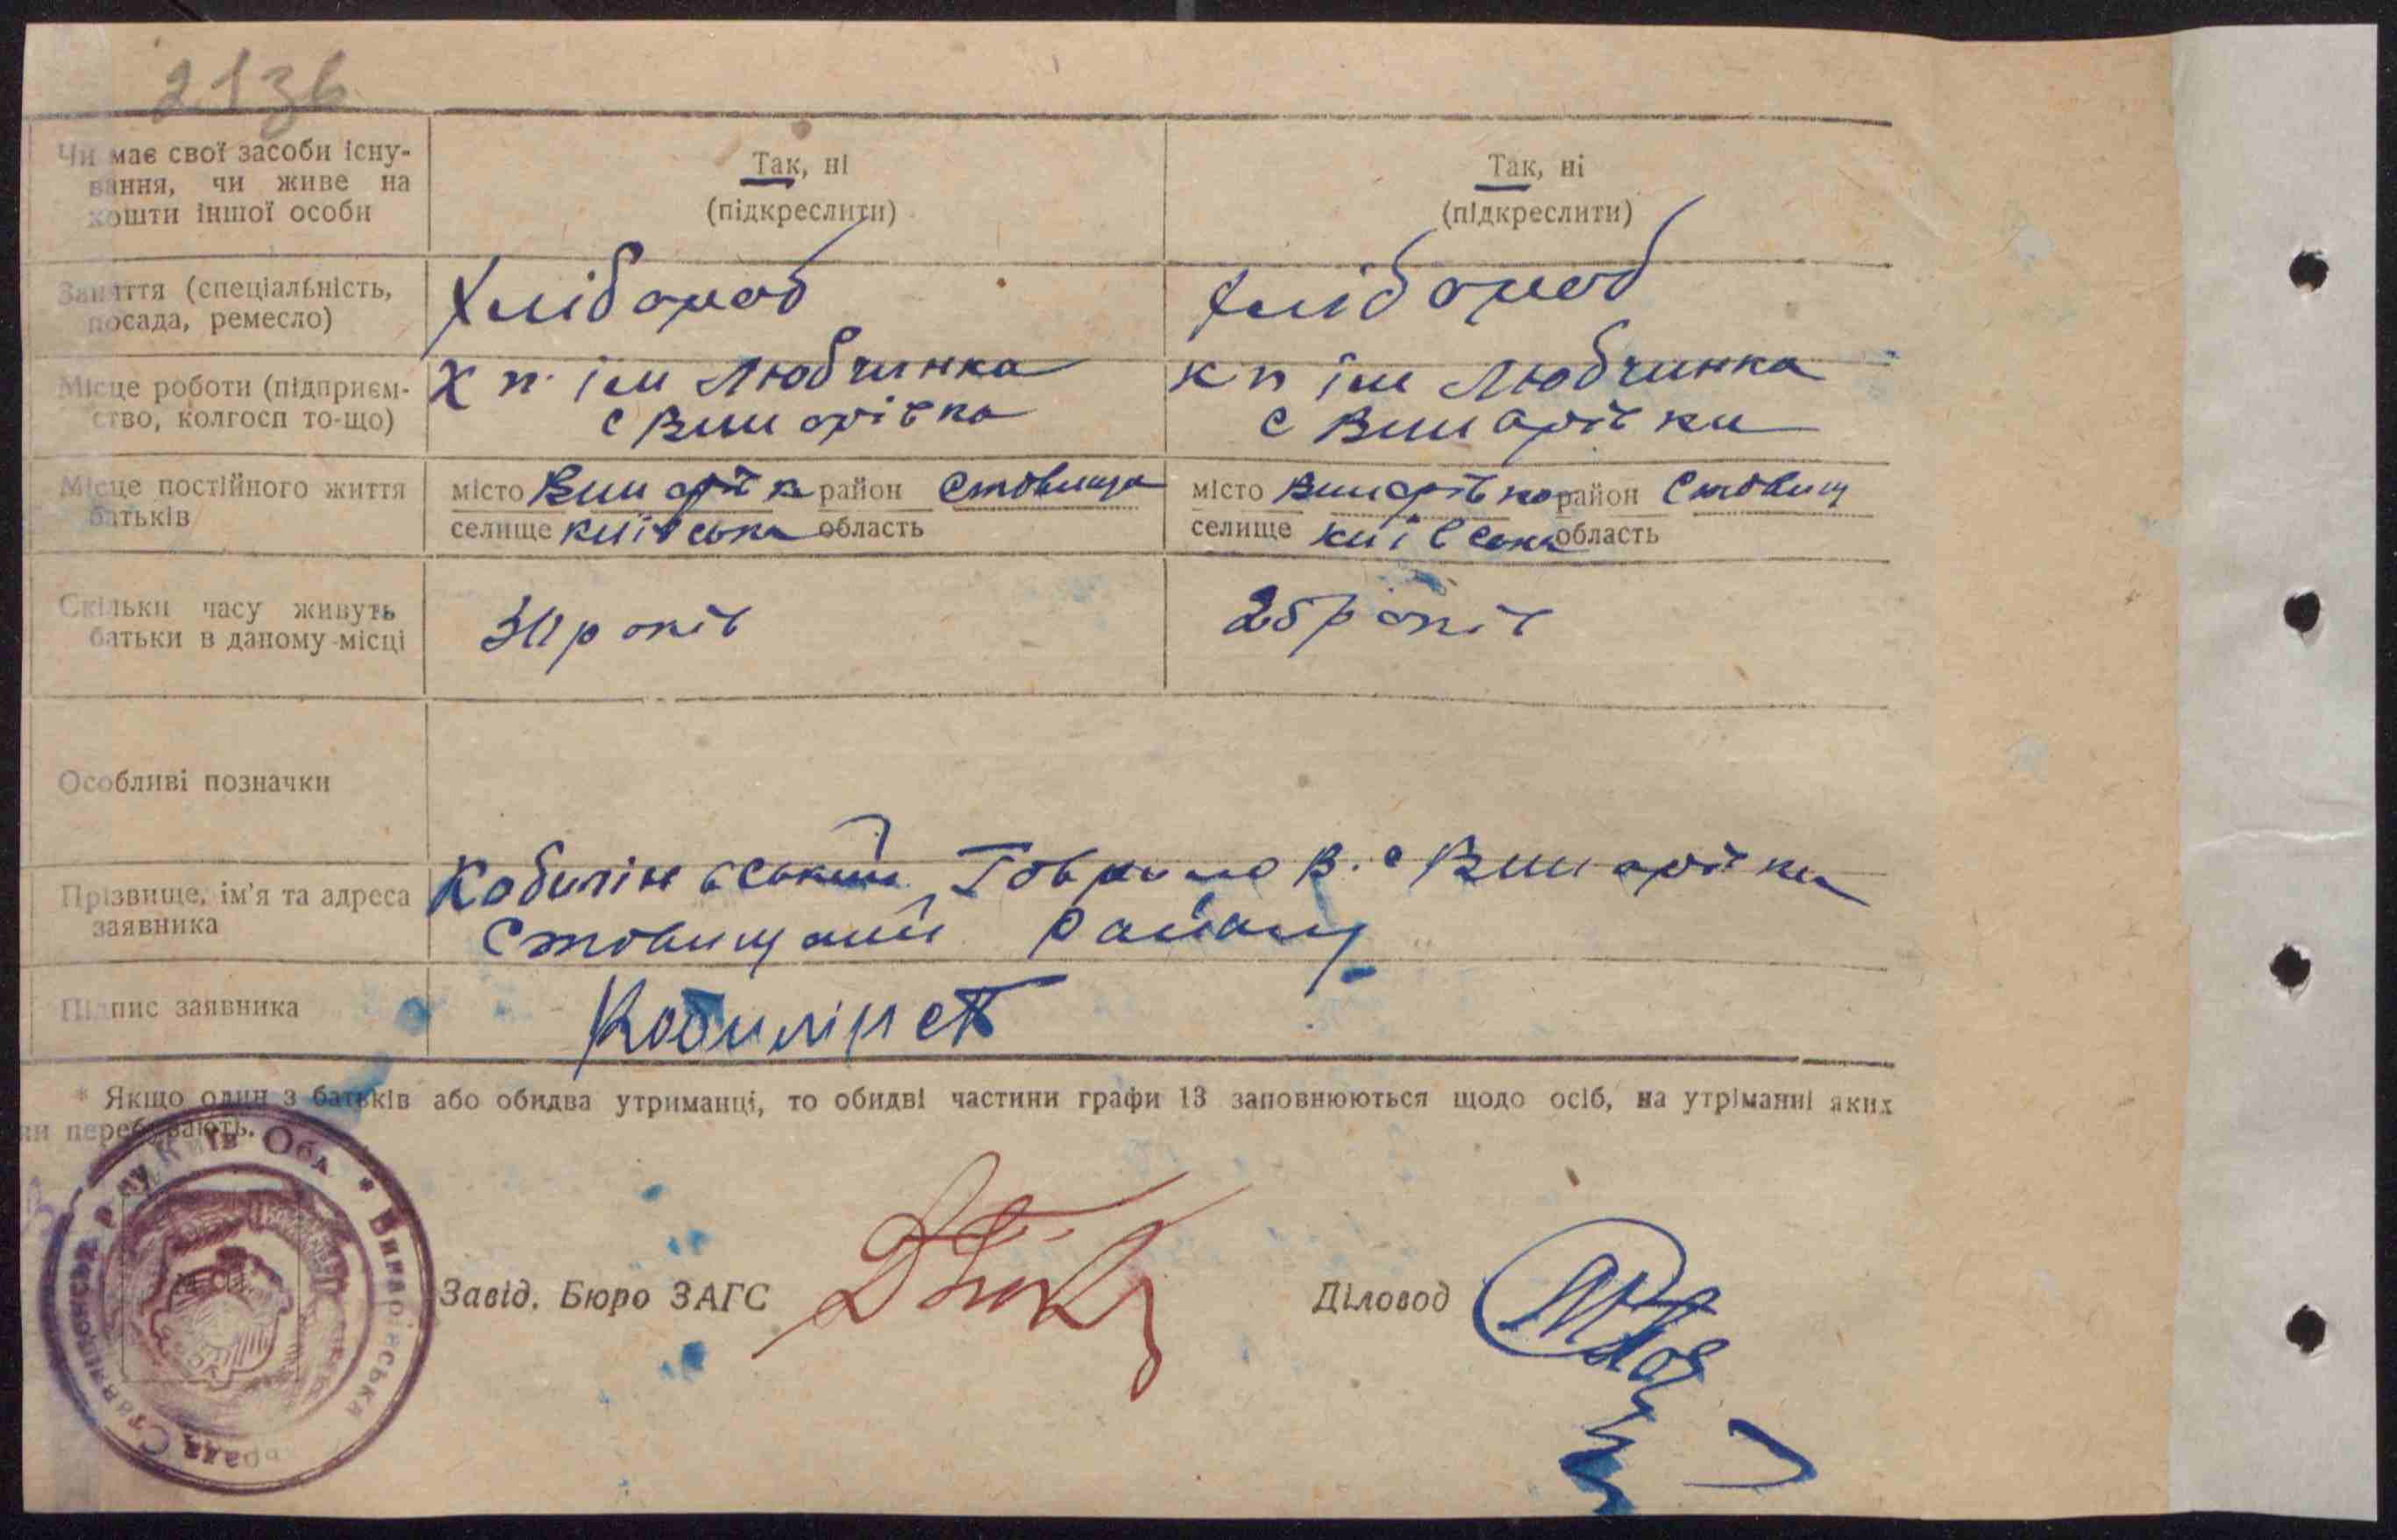 213б
Чи має свої засоби існу-
вання, чи живе на
кошти іншої особи
Так, ні
(підкреслити)
Так, ні
(підкреслити)
Заняття (спеціальність,
посада, ремесло)
Хлібороб
Хлібороб
Місце роботи (підприєм-
ство, колгосп то-що)
К п ім Любчинка
с Винарівка
К п ім Любчинка
с Винарівки
Місце постійного життя
батьків
місто Винарівк район Стовища
селище київська область
місто Винарівка район Стовищ
селище київська область
Скільки часу живуть
батьки в даному місці
30 років
25 років
Особливі позначки
Прізвище, ім'я та адреса
заявника
Кобилінський Говрило В. с Винарівки
Стовищ район
Підпис заявника
Кобилінск
* Якщо один з батьків або обидва утриманці, то обидві частини графи 13 заповнюються щодо осіб, на утріманні яких
ни перебувають.
Київ Обл. * Винарівська
рада Ставищанськ р-ну
Завід. Бюро ЗАГС
Діловод